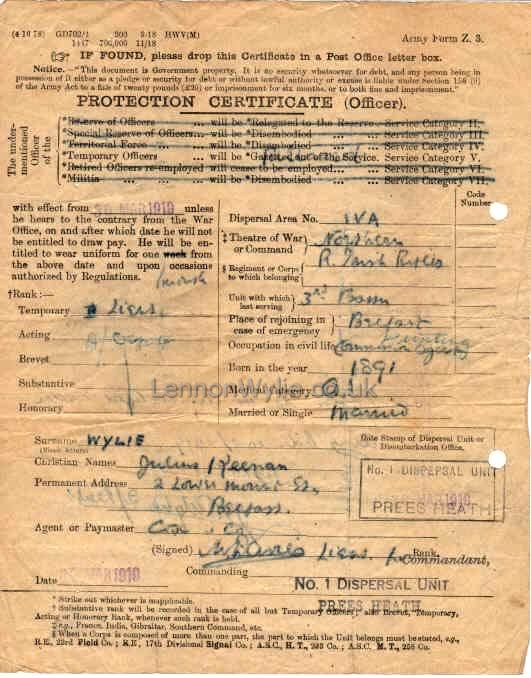 (4 10 78) GD702/1 200 3-18 HWV(M)
1447 700,000 11/18
Army Form Z. 3.
IF FOUND, please drop this Certificate in a Post Office letter box.
Notice.—"This document is Government property. It is no security whatsoever for debt, and any person being in
possession of it either as a pledge or security for debt or without lawful authority or excuse is liable under section 156 (9)
of the Army Act to a fine of twenty pounds (£20) or imprisonment for six months, or to both fine and imprisonment."
PROTECTION CERTIFICATE (Officer).
The under-mentioned Officer of the
*Reserve of Officers ... will be *Relegated to the Reserve. Service Category II.
*Special Reserve of Officers... will be *Disembodied ... ... Service Category III.
*Territorial Force ... will be *Disembodied ... ... Service Category IV.
*Temporary Officers ... will be * out of the Service. Service Category V.
*Retired Officers re-employed will cease to be employed... ... Service Category VI.
*Militia ... ... will be *Disembodied ... ... Service Category VII.
Code Number
with effect from MAR 1919 unless
he hears to the contrary from the War
Office, on and after which date he will not
be entitled to draw pay. He will be en-
titled to wear uniform for one week from
month
the above date and upon occasions
authorized by Regulations.
†Rank :—
Temporary Lieut.
Acting
Brevet
Substantive
Honorary
Dispersal Area No. IVA
‡ Theatre of War or Command Northern
§ Regiment or Corps to which belonging R. Irish Rifles
Unit with which last serving 3rd Battn
Place of rejoining in case of emergency Belfast
Occupation in civil life
Born in the year 1891
Medical category
Married or Single Married
Lennon Wylie.co.uk
Surname WYLIE
(Block letters)
Christian Names Julius Keenan
Permanent Address 2 Lower Mount St,
Belfast.
Agent or Paymaster Cox & Co
Date Stamp of Dispersal Unit or
Disembarkation Office.
No. 1 DISPERSAL UNIT
MAR 1919
PREES HEATH
(Signed) Lieut. Rank.
for Commandant,
Commanding
Date MAR 1919
No. 1 DISPERSAL UNIT
PREES HEATH
* Strike out whichever is inapplicable.
† Substantive rank will be recorded in the case of all but Temporary Officers; also Brevet, Temporary,
Acting or Honorary Rank, whenever such rank is held.
‡ e.g., France, India, Gibraltar, Southern Command, etc.
§ When a Corps is composed of more than one part, the part to which the Unit belongs must be stated, e.g.,
R.E., 23rd Field Co.; R.E., 17th Divisional Signal Co.; A.S.C., H.T., 293 Co.; A.S.C. M.T., 256 Co.